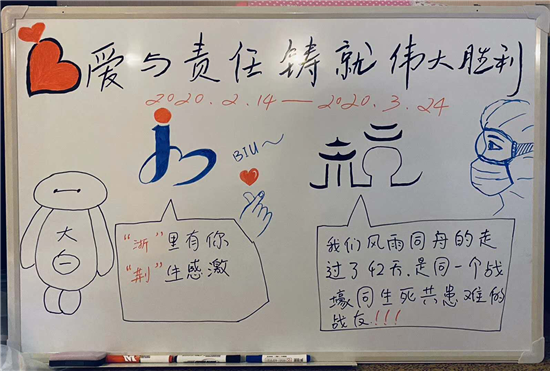 爱与责任铸就伟大胜利
2020.2.14—2020.3.24
BIU~
大白
“浙”里有你
“荆”生感激
我们风雨同舟的走
过了42天,是同一个战
壕同生死共患难的
战友!!!